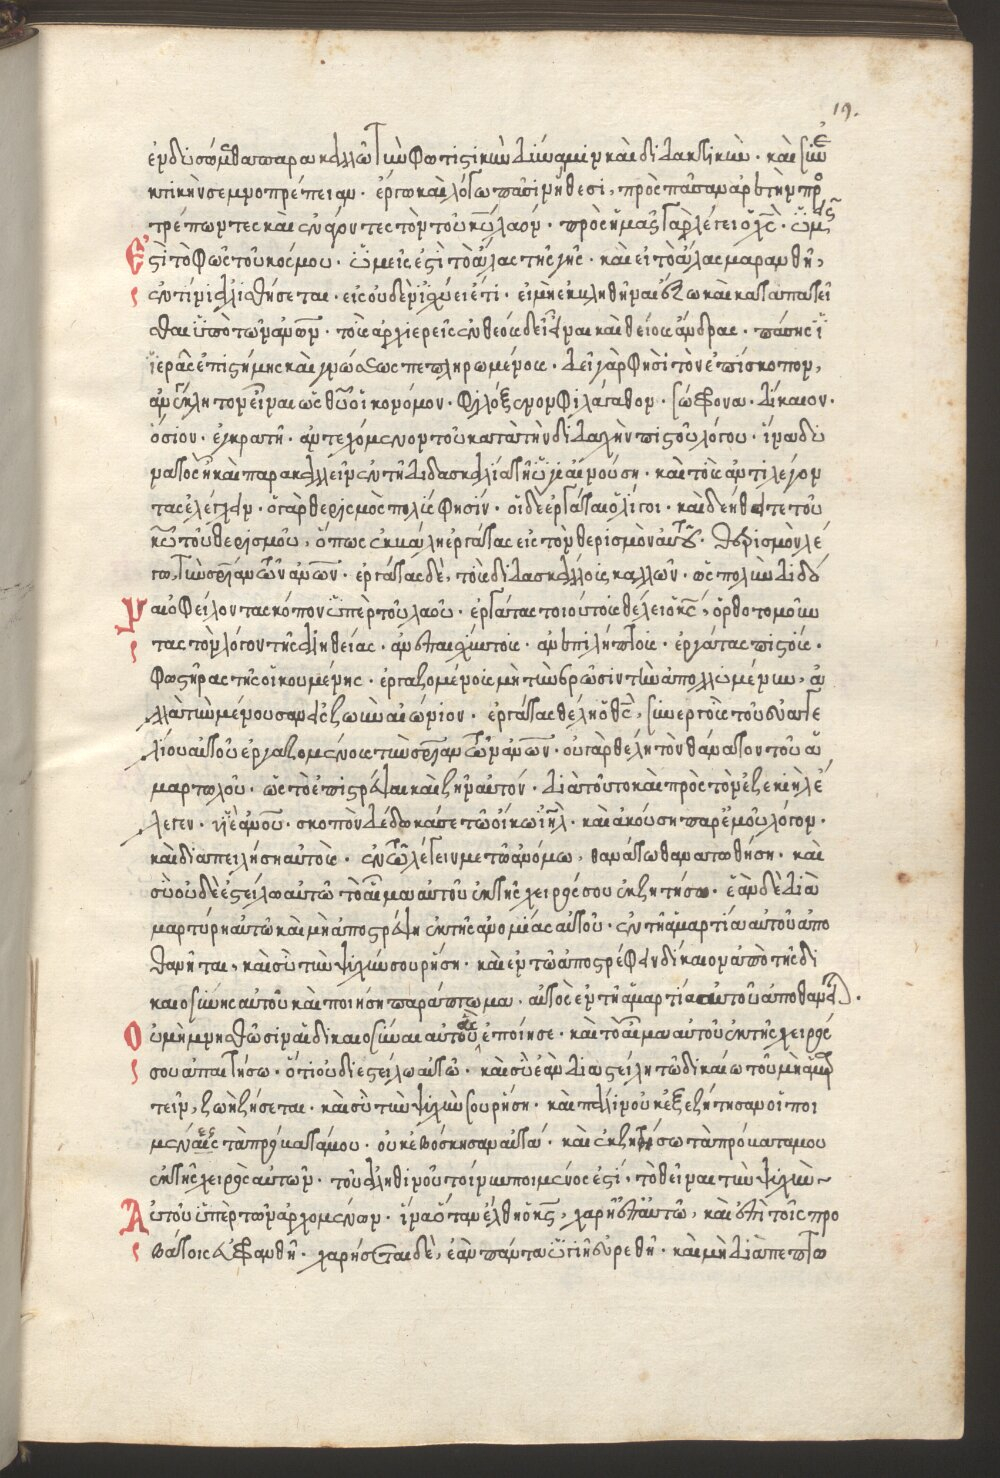 19.
ἐνδυσώμεθα παρακαλῶ τὴν φωτιστικὴν δύναμιν καὶ διδακτικὴν · καὶ συνε
κτικὴν σεμνοπρέπειαν · ἔργω καὶ λόγω πᾶσιν ἤθεσι, πρὸς πᾶσαν ἀρετὴν προ
τρέποντες καὶ ἐνάγοντες τὸν τοῦ κυ λαόν · πρὸς ἡμᾶς γὰρ λέγει ὁ χς · ὑμεῖς
ἐστὲ τὸ φῶς τοῦ κόσμου · ὑμεῖς ἐστὲ τὸ ἅλας τῆς γῆς · καὶ εἰ τὸ ἅλας μαρανθῆ,
ἐν τίνι ἁλισθήσεται · εἰς οὐδὲν ἰσχύει ἔτι · εἰ μὴ ἐκβληθῆναι ἔξω καὶ καταπατεῖ
σθαι ὑπὸ τῶν ανων · τοὺς ἀρχιερεῖς ἐνθέους δεῖ εἶναι καὶ θείους ἄνδρας · πάσης
ἱερᾶς ἐπιστήμης καὶ γνώσεως πεπληρωμένους · δεῖ γὰρ φησὶ τὸν ἐπίσκοπον,
ἀνέγκλητον εἶναι ὡς θυ οἰκονόμον · φιλόξενον φιλάγαθον · σώφρονα · δίκαιον ·
ὅσιον · ἐγκρατῆ · ἀντεχόμενον τοῦ κατὰ τὴν διδαχὴν πιστοῦ λόγου · ἵνα δυ
νατὸς ἦ καὶ παρακαλεῖν ἐν τῆ διδασκαλία τῆ ὑγιαινούση · καὶ τοὺς ἀντιλέγον
τας ἐλέγχειν · ὁ γὰρ θερισμὸς πολύς φησίν · οἱ δὲ ἐργάται ὀλίγοι · καὶ δεήθητε τοῦ
κυ τοῦ θερισμοῦ, ὅπως ἐκβάλη ἐργάτας εἰς τὸν θερισμὸν αὐτοῦ · θερισμὸν λέ
γω, τὴν σριαν τῶν ανων · ἐργάτας δὲ, τοὺς διδασκάλους καλῶν · ὡς πολὺν διδό
ναι ὀφείλοντας κόπον ὑπὲρ τοῦ λαοῦ · ἐργάτας τοιούτους θέλει ὁ κς, ὀρθοτομοῦν
τας τὸν λόγον τῆς ἀληθείας · ἀνεπαισχύντους · ἀνεπιλήπτους · ἐργάτας πιστούς ·
φωστῆρας τῆς οἰκουμένης · ἐργαζομένους μὴ τὴν βρῶσιν τὴν ἀπολλυμένην, ἀ
λλὰ τὴν μένουσαν εἰς ζωὴν αἰώνιον · ἐργάτας θέλει ὁ θς, συνεργοὺς τοῦ εὐαγγε
λίου αὐτοῦ ἐργαζομένους τὴν σριαν τῶν ανων · οὐ γὰρ θέλη τὸν θάνατον τοῦ ἁ
μαρτωλοῦ · ὡς τὸ ἐπιστρέψαι καὶ ζῆν αὐτόν · διὰ τοῦτο καὶ πρὸς τὸν ἐζεκιὴλ ἔ
λεγεν · υἱὲ ανου · σκοπὸν δέδωκά σε τῶ οἴκω ιηλ · καὶ ἀκούση παρ' ἐμοῦ λόγον ·
καὶ διαπειλήση αὐτοὺς · ἐν τῶ λέγειν με τῶ ἀνόμω, θανάτω θανατωθήση · καὶ
σὺ οὐ διεστείλω αὐτῶ τὸ αἷμα αὐτοῦ ἐκ τῆς χειρός σου ἐκζητήσω · ἐὰν δὲ δια
μαρτύρη αὐτῶ καὶ μὴ ἀποστρέψη ἐκ τῆς ἀνομίας αὐτοῦ · ἐν τῆ ἁμαρτία αὐτοῦ ἀπο
θανῆται, καὶ σὺ τὴν ψυχήν σου ρύση · καὶ ἐν τῶ ἀποστρέφειν δίκαιον ἀπὸ τῆς δι
καιοσύνης αὐτοῦ καὶ ποιήση παράπτωμα, αὐτὸς ἐν τῆ ἁμαρτία αὐτοῦ ἀποθανεῖ) ·
οὐ μὴ μνησθῶσιν αἱ δικαιοσύναι αὐτοῦ ἃς ἐποίησε · καὶ τὸ αἷμα αὐτοῦ ἐκ τῆς χειρός
σου ἀπαιτήσω · ὅτι οὐ διεστείλω αὐτῶ · καὶ σὺ ἐὰν διαστείλη τῶ δικαίω τοῦ μὴ ἁμαρ
τεῖν, ζωῆ ζήσεται · καὶ σὺ τὴν ψυχήν σου ρύση · καὶ πάλιν οὐκ ἐξεζήτησαν οἱ ποι
μένες τὰ πρόβατά μου · οὐκ ἐβόσκησαν αὐτά · καὶ ἐκζητήσω τὰ πρόβατά μου
ἐκ τῆς χειρὸς αὐτῶν · τοῦ ἀληθινοῦ τοίνυν ποιμένος ἐστί · τὸ θεῖναι τὴν ψυχὴν
αὐτοῦ ὑπὲρ τῶν ἀρχομένων · ἵνα ὅταν ἔλθη ὁ κς, χαρῆ ἐπ' αὐτῶ, καὶ ἐπὶ τοῖς προ
βάτοις ἃ ἐφάνθη · χαρήσεται δὲ, ἐὰν πάντα ὑγιῆ εὑρεθῆ · καὶ μὴ διαπεπτω